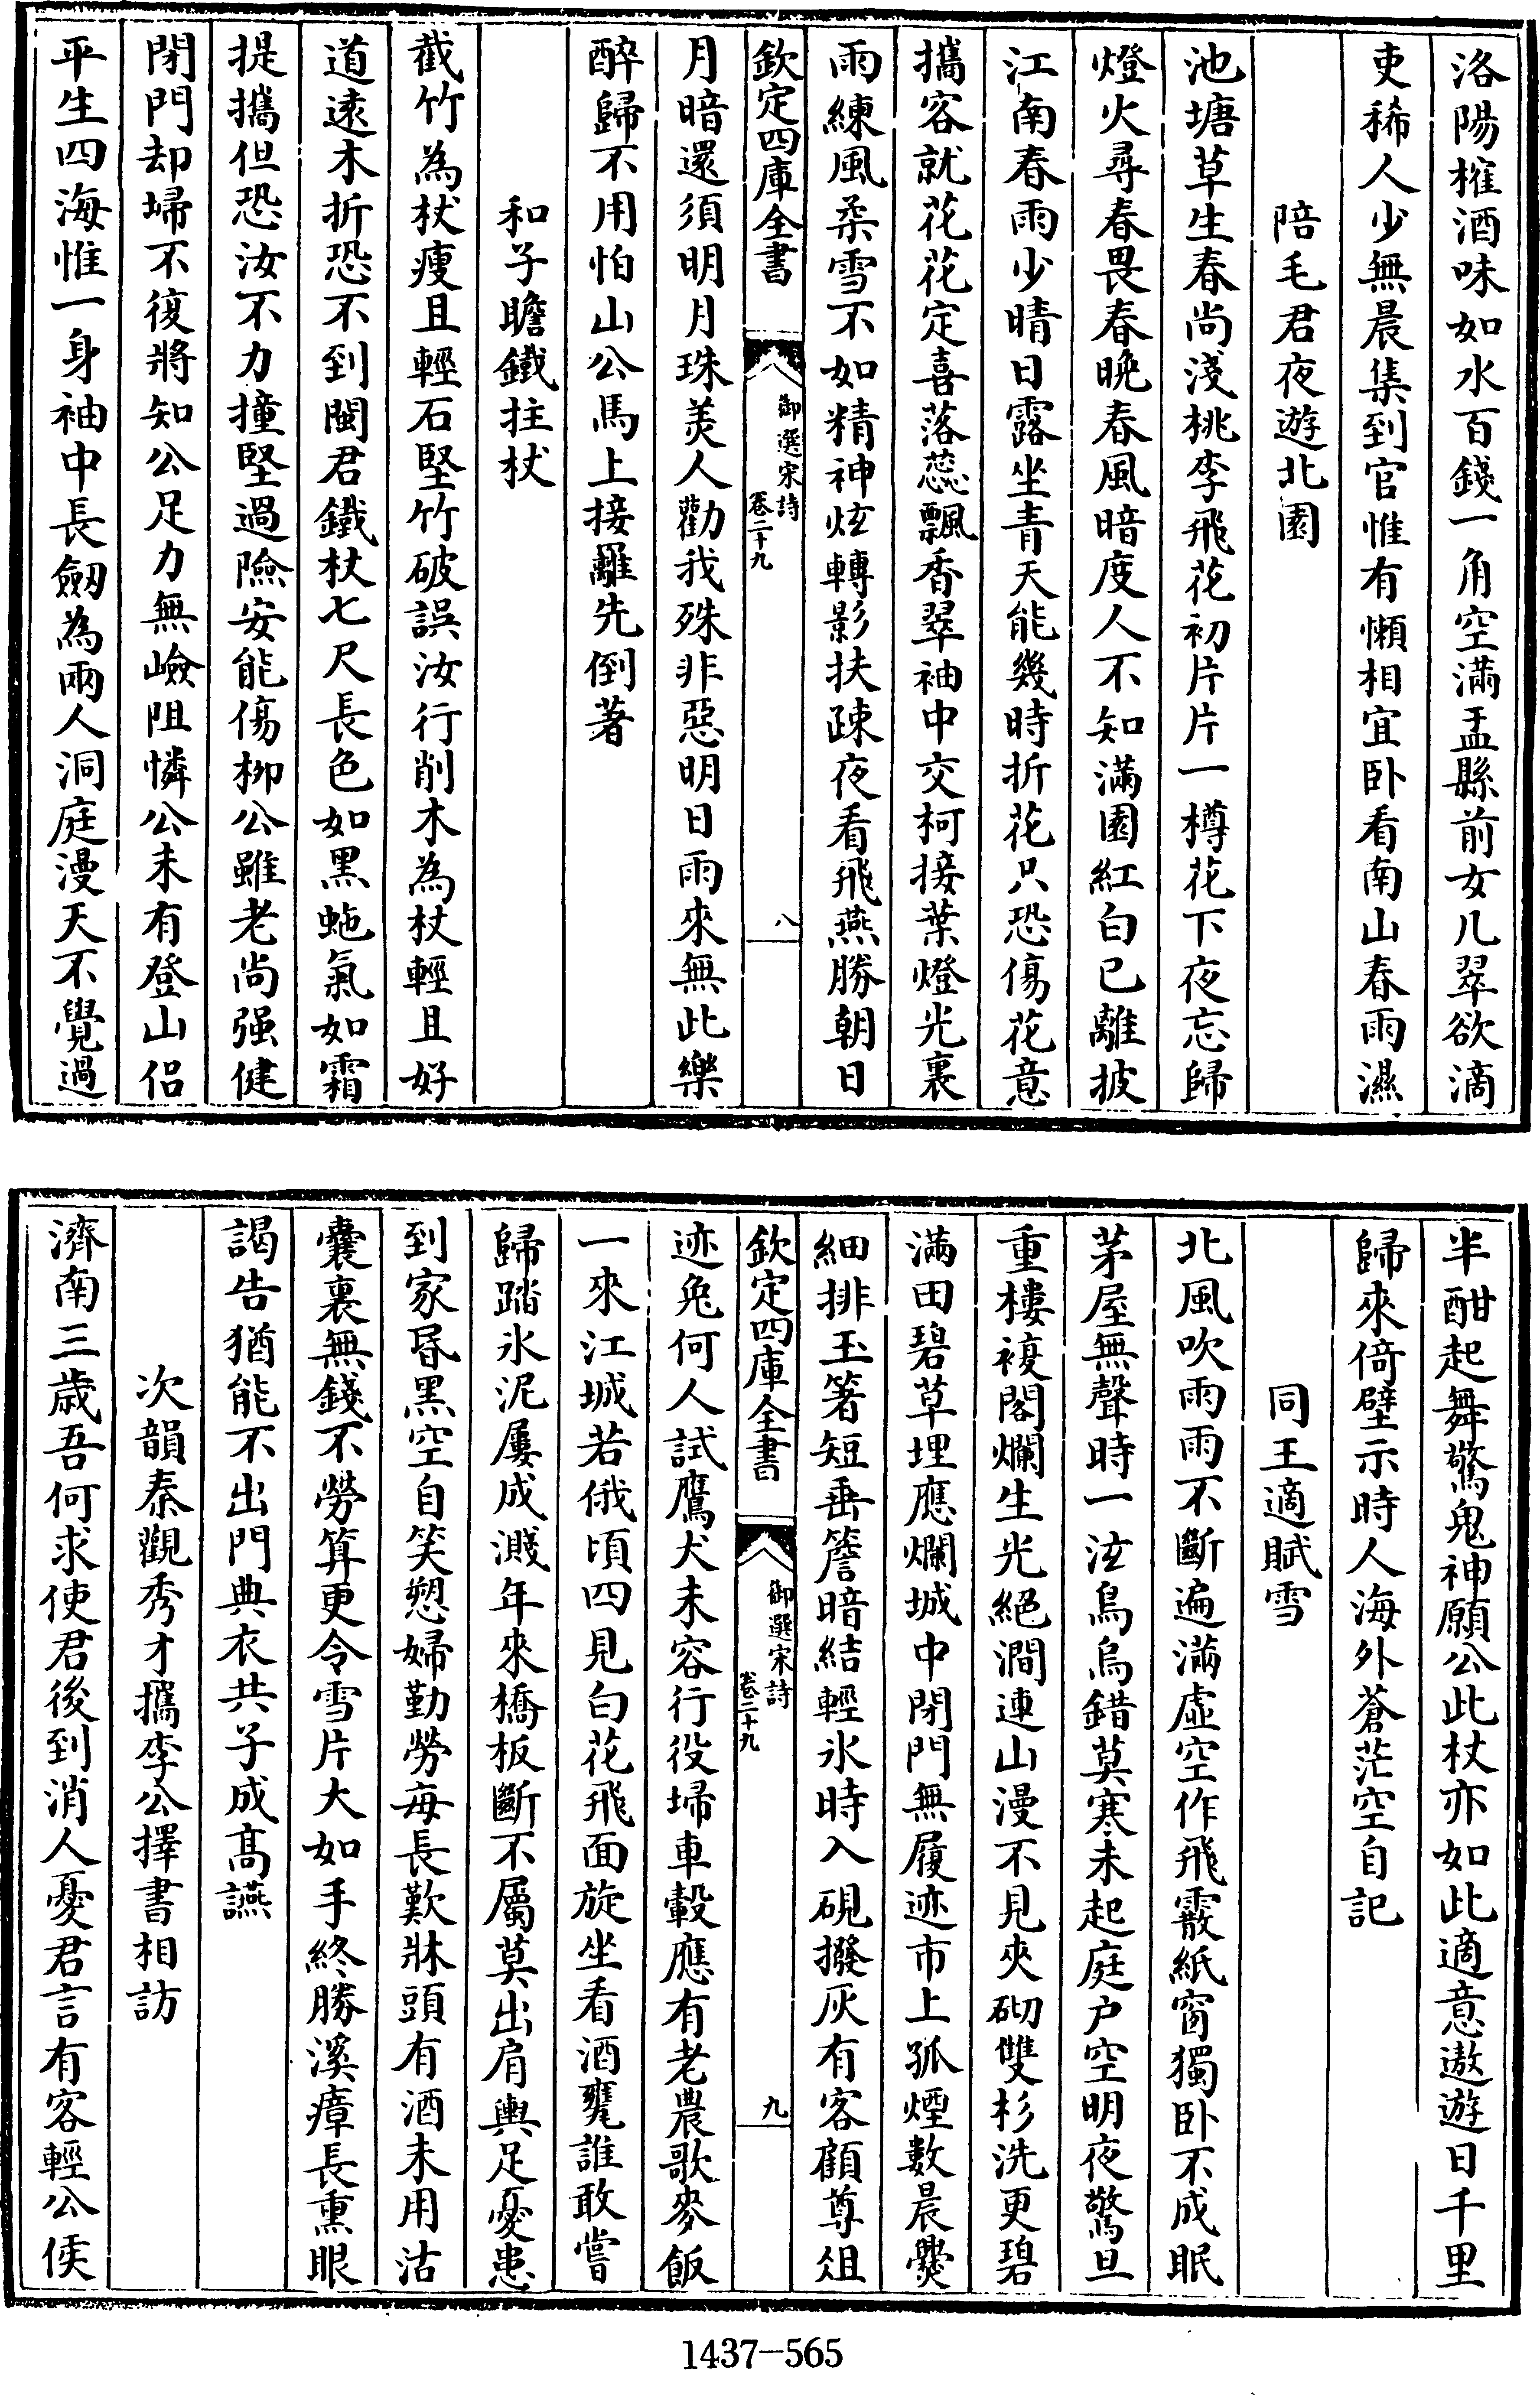 洛陽榷酒味如水百錢一角空滿盂縣前女几翠欲滴
吏稀人少無晨集到官惟有懶相宜卧看南山春雨濕
陪毛君夜遊北園
池塘草生春尚淺桃李飛花初片片一樽花下夜忘歸
燈火尋春畏春晚春風暗度人不知滿園紅白已離披
江南春雨少晴日露坐青天能幾時折花只恐傷花意
攜客就花花定喜落蕊飄香翠袖中交柯接葉燈光裏
雨練風柔雪不如精神炫轉影扶疎夜看飛燕勝朝日
欽定四庫全書
御選宋詩
卷二十九
八
月暗還須明月珠美人勸我殊非惡明日雨來無此樂
醉歸不用怕山公馬上接䍦先倒著
和子瞻鐵拄杖
截竹為杖瘦且輕石堅竹破誤汝行削木為杖輕且好
道逺木折恐不到閩君鐵杖七尺長色如黑虵氣如霜
提攜但恐汝不力撞堅過險安能傷栁公雖老尚强健
閉門却埽不復將知公足力無嶮阻憐公未有登山侣
平生四海惟一身袖中長劒為兩人洞庭漫天不覺過
半酣起舞驚鬼神願公此杖亦如此適意遨遊日千里
歸來倚壁示時人海外蒼茫空自記
同王適賦雪
北風吹雨雨不斷遍滿虛空作飛霰紙窗獨卧不成眠
茅屋無聲時一泫烏烏錯莫寒未起庭户空明夜驚旦
重樓複閣爛生光絕澗連山漫不見夾砌雙杉洗更碧
滿田碧草埋應爛城中閉門無履迹市上孤煙數晨爨
細排玉箸短垂簷暗結輕氷時入硯撥灰有客顧尊俎
欽定四庫全書
御選宋詩
卷二十九
九
迹兔何人試鷹犬未容行役埽車轂應有老農歌麥飯
一來江城若俄頃四見白花飛面旋坐看酒甕誰敢嘗
歸踏氷泥屢成濺年來橋板斷不屬莫出肩輿足憂患
到家昬黑空自笑愬婦勤勞每長歎牀頭有酒未用沽
囊裏無錢不勞算更令雪片大如手終勝溪瘴長熏眼
謁告猶能不出門典衣共子成髙讌
次韻秦觀秀才攜李公擇書相訪
濟南三歳吾何求使君後到消人憂君言有客輕公侯
1437-565